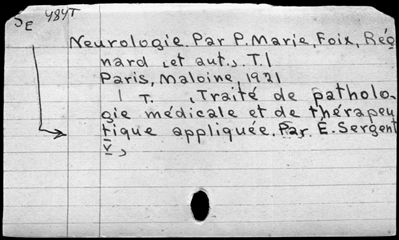 JE 484T
Neurologie. Par P. Marie, Foix, Rég
nard et aut. T.I
Paris, Maloine, 1921
1 T. , Traité de patholo-
gie médicale et de thérapeu
tique appliquée. Par, E. Sergent
V,